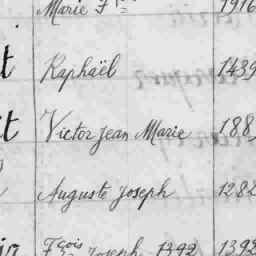 Marie Fse 1916
t Raphaël 1439
t Victor Jean Marie 188
Auguste Joseph 1282
Fçois Joseph 1392 1392